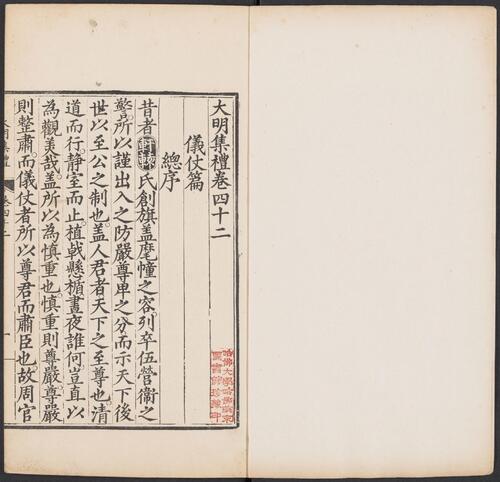 大明集禮卷四十二
儀仗篇
總序
昔者軒轅氏創旗蓋麾幢之容列卒伍營衞之
警所以謹出入之防嚴尊卑之分而示天下後
世以至公之制也蓋人君者天下之至尊也清
道而行靜室而止植戟懸楯晝夜誰何豈直以
為觀美哉蓋所以為慎重也慎重則尊嚴尊嚴
則整肅而儀仗者所以尊君而肅臣也故周官
大明集禮 卷四十二 一
哈佛大學哈佛燕京
圖書館珍藏印